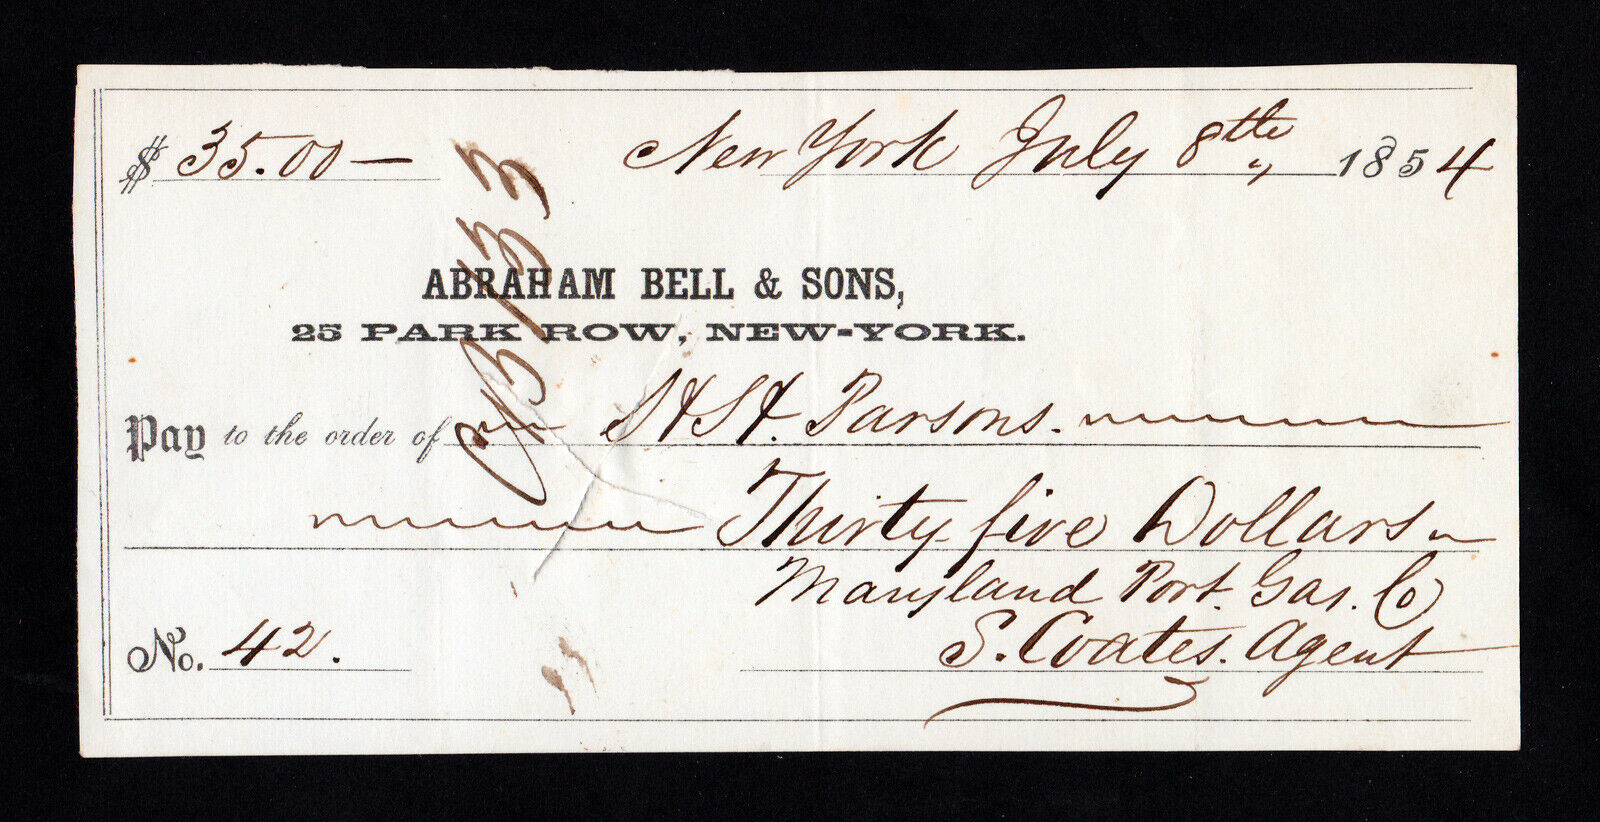 $ 35.00 — New York July 8th 1854
ABRAHAM BELL & SONS,
25 PARK ROW, NEW-YORK.
Pay to the order of Parsons.
Thirty five Dollars
Maryland Port. Gas. Co
No. 42. S. Coates. Agent